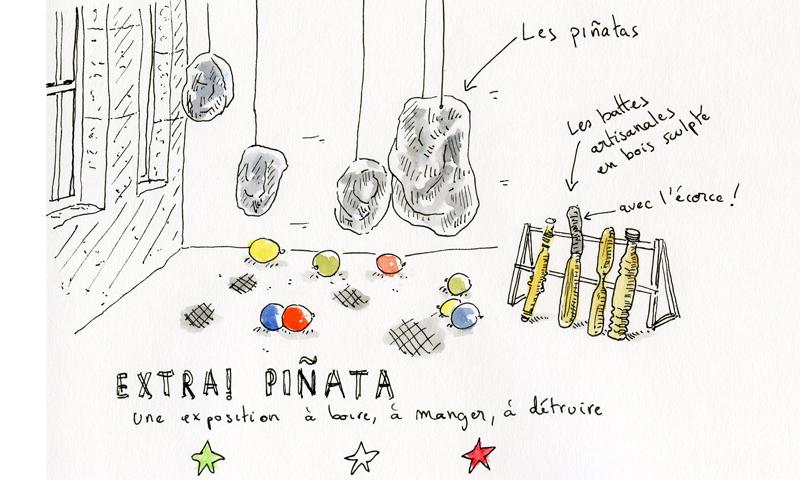 Les piñatas
Les battes
artisanales
en bois sculpté
avec l'écorce !
EXTRA! PIÑATA
une exposition à boire, à manger, à détruire